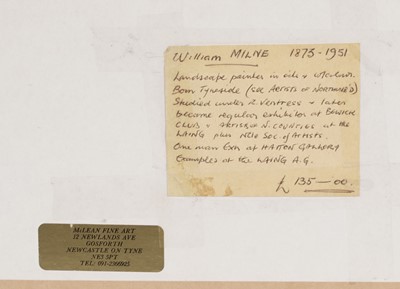 William MILNE 1873-1951
Landscape painter in oils & w/colour.
Born Tyneside (see Artists of Northumb'd)
Studied under R. Ventress & later
became regular exhibitor at Bewick
Club & Artists of N. Counties at the
LAING plus N/Cle Soc of Artists.
One man Exn at HATTON GALLERY
Examples at the LAING A.G.
£ 135—00.
McLEAN FINE ART
12 NEWLANDS AVE
GOSFORTH
NEWCASTLE ON TYNE
NE3 5PT
TEL: 091-